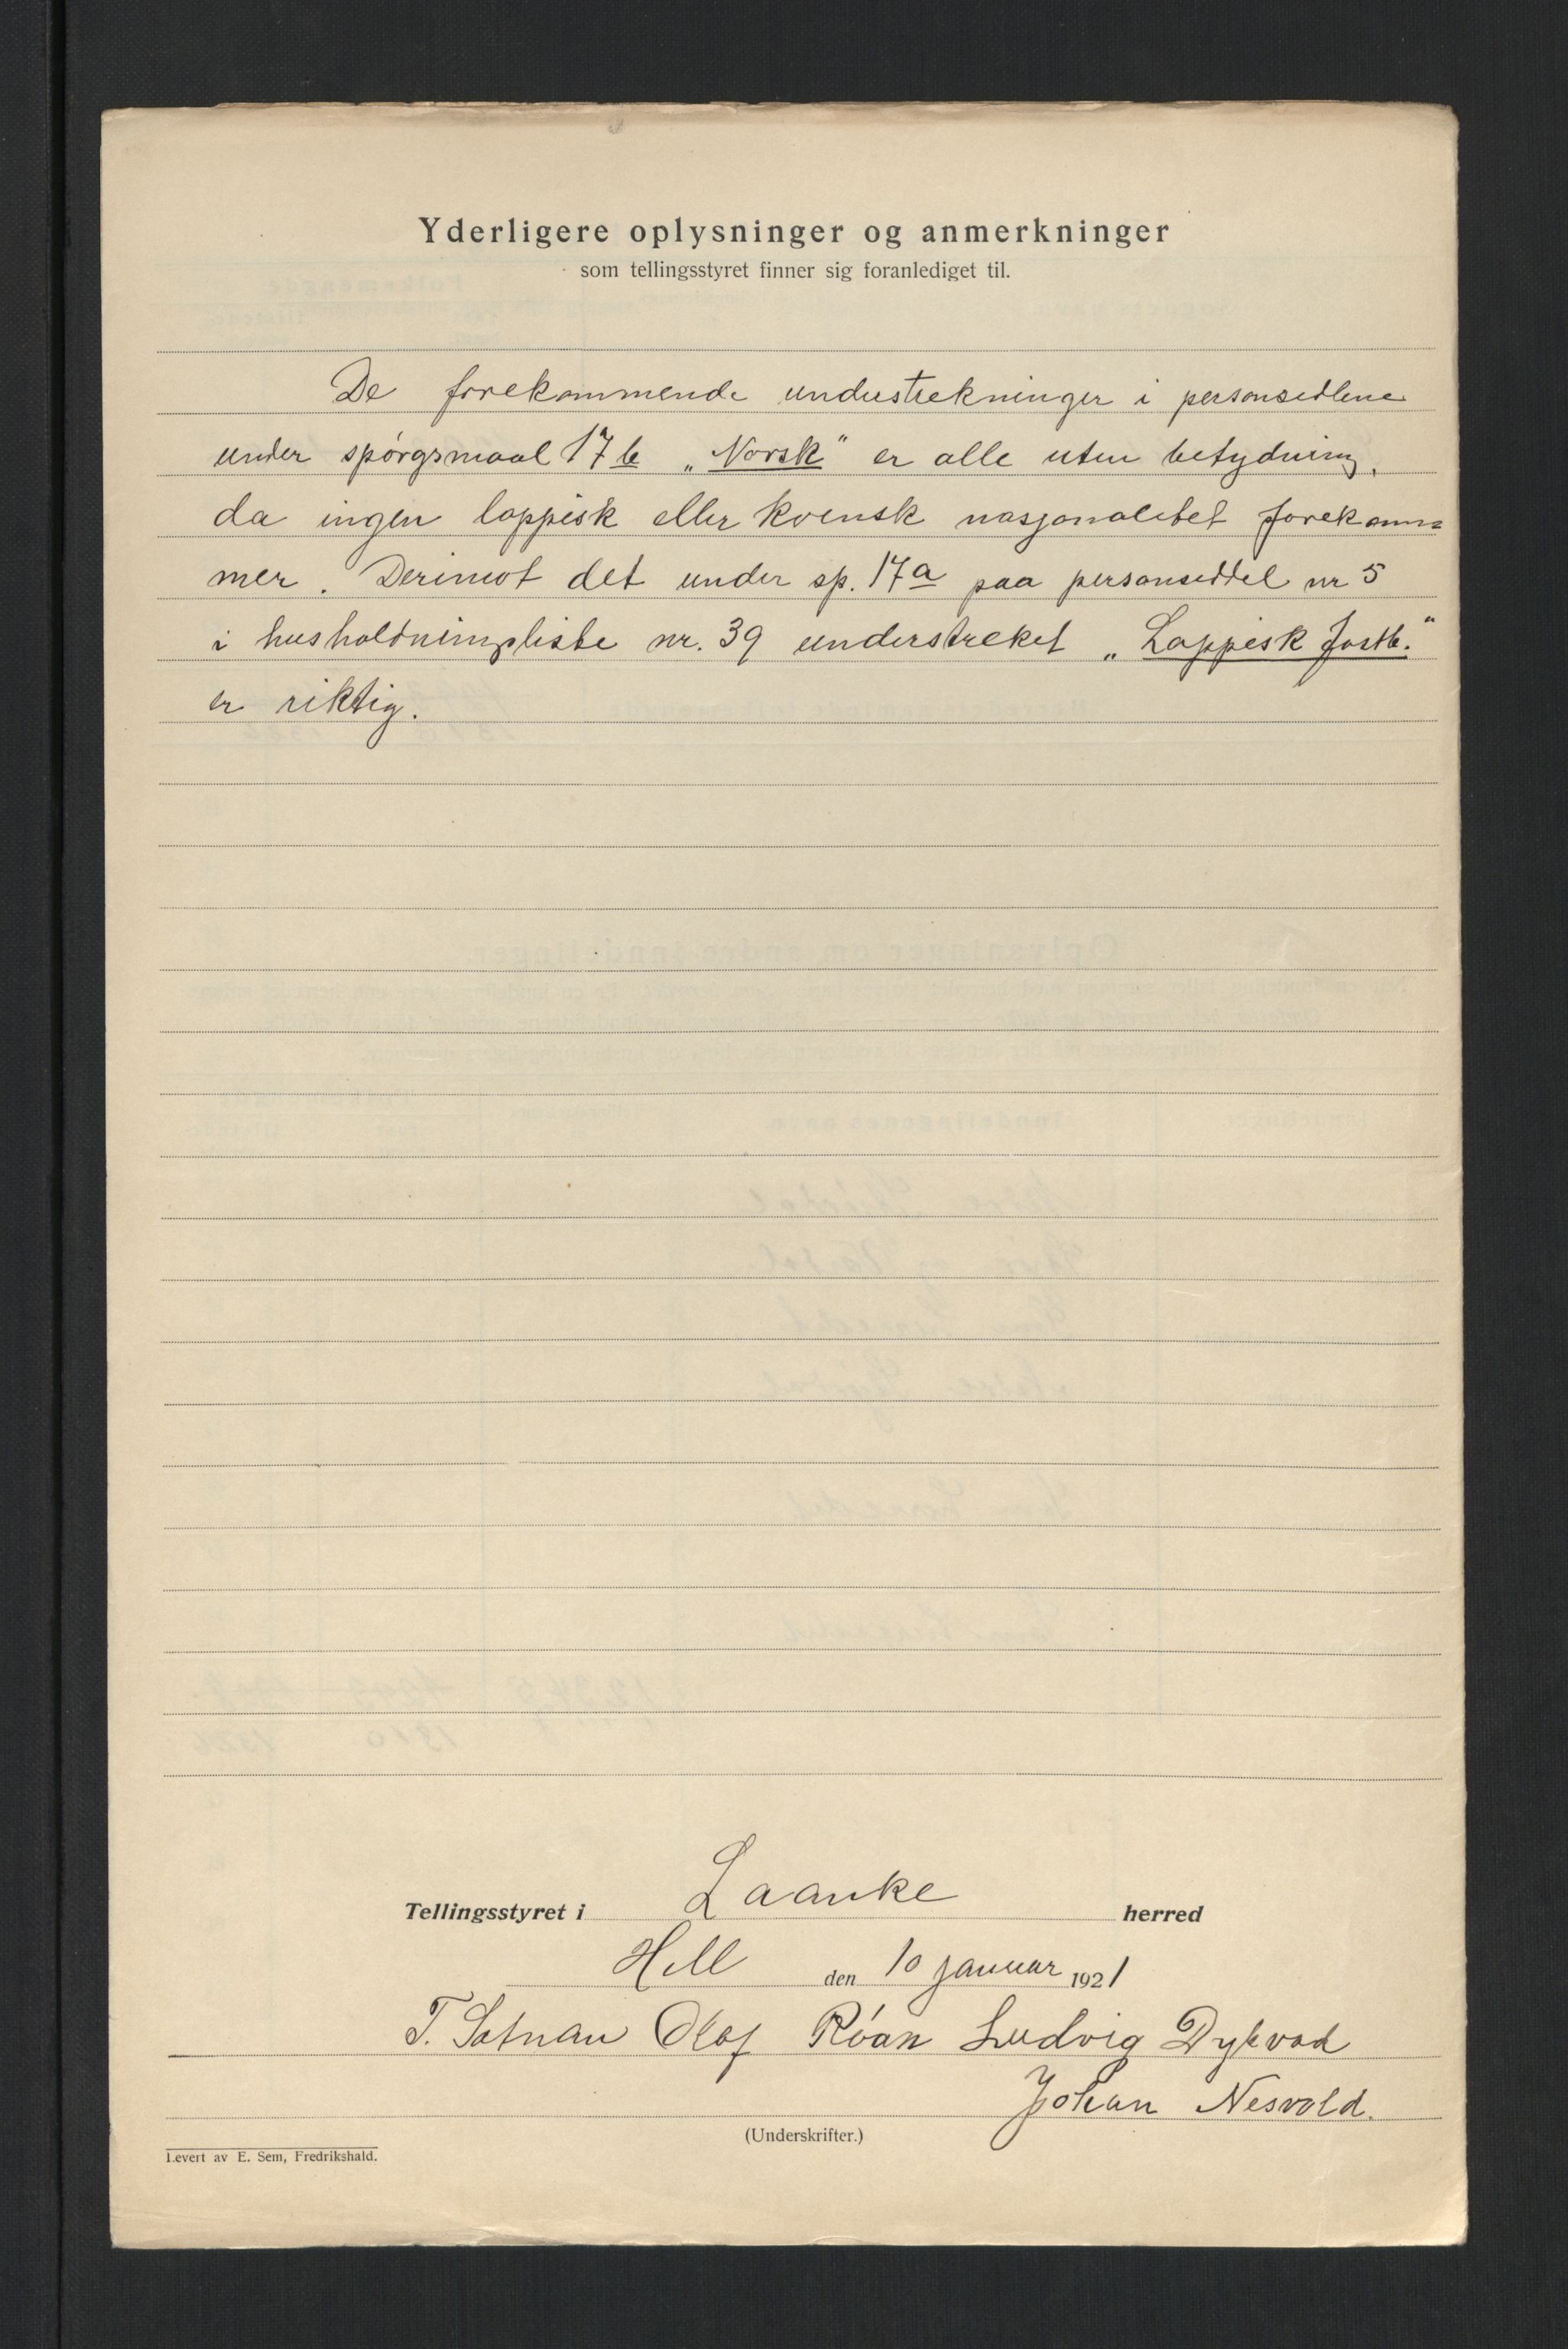 Yderligere oplysninger og anmerkninger
som tellingsstyret finner sig foranlediget til.
De forekommende understrekninger i personsedlene
under spørgsmaal 17 b „Norsk" er alle uten betydning,
da ingen lappisk eller kvensk nasjonalitet forekom=
mer. Derimot det under sp. 17 a paa personseddel nr 5
i husholdningsliste nr. 39 understreket „Lappisk fastb."
er riktig.
Tellingsstyret i Laanke herred
Hell den 10 januar 1921
T. Olaf Róan Ludvig Dybvad
Johan Nesvold.
(Underskrifter.)
Levert av E. Sem, Fredrikshald.